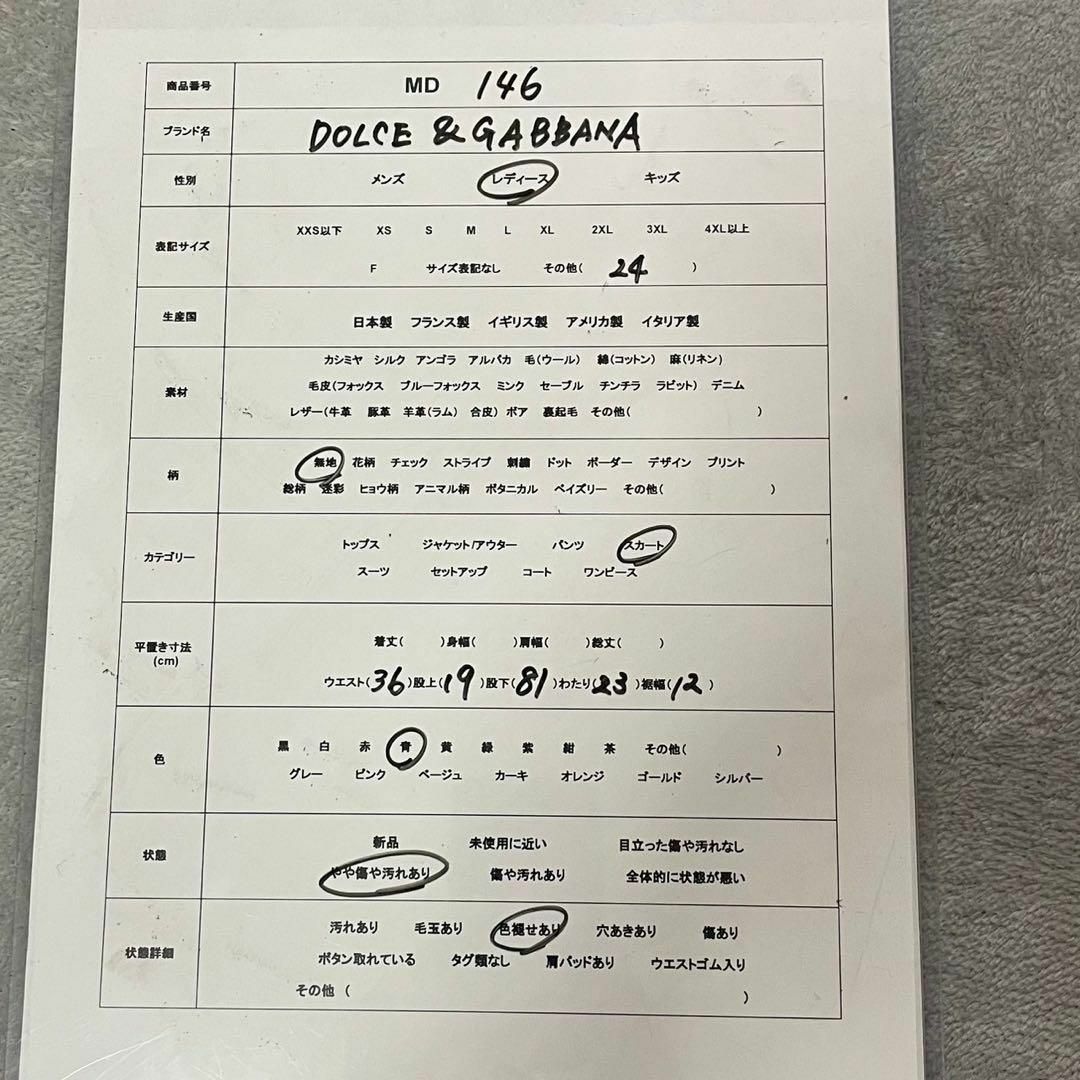 商品番号 MD 146
ブランド名 DOLCE & GABBANA
性別 メンズ レディース キッズ
表記サイズ
XXS以下 XS S M L XL 2XL 3XL 4XL以上
F サイズ表記なし その他( 24 )
生産国 日本製 フランス製 イギリス製 アメリカ製 イタリア製
素材
カシミヤ シルク アンゴラ アルパカ 毛(ウール) 綿(コットン) 麻(リネン)
毛皮(フォックス ブルーフォックス ミンク セーブル チンチラ ラビット) デニム
レザー(牛革 豚革 羊革(ラム) 合皮) ボア 裏起毛 その他( )
柄
無地 花柄 チェック ストライプ 刺繍 ドット ボーダー デザイン プリント
総柄 迷彩 ヒョウ柄 アニマル柄 ボタニカル ペイズリー その他( )
カテゴリー
トップス ジャケット/アウター パンツ スカート
スーツ セットアップ コート ワンピース
平置き寸法
(cm)
着丈( )身幅( )肩幅( )総丈( )
ウエスト(36)股上(19)股下(81)わたり(23)裾幅(12)
色
黒 白 赤 青 黄 緑 紫 紺 茶 その他( )
グレー ピンク ベージュ カーキ オレンジ ゴールド シルバー
状態
新品 未使用に近い 目立った傷や汚れなし
やや傷や汚れあり 傷や汚れあり 全体的に状態が悪い
状態詳細
汚れあり 毛玉あり 色褪せあり 穴あきあり 傷あり
ボタン取れている タグ類なし 肩パッドあり ウエストゴム入り
その他 ( )